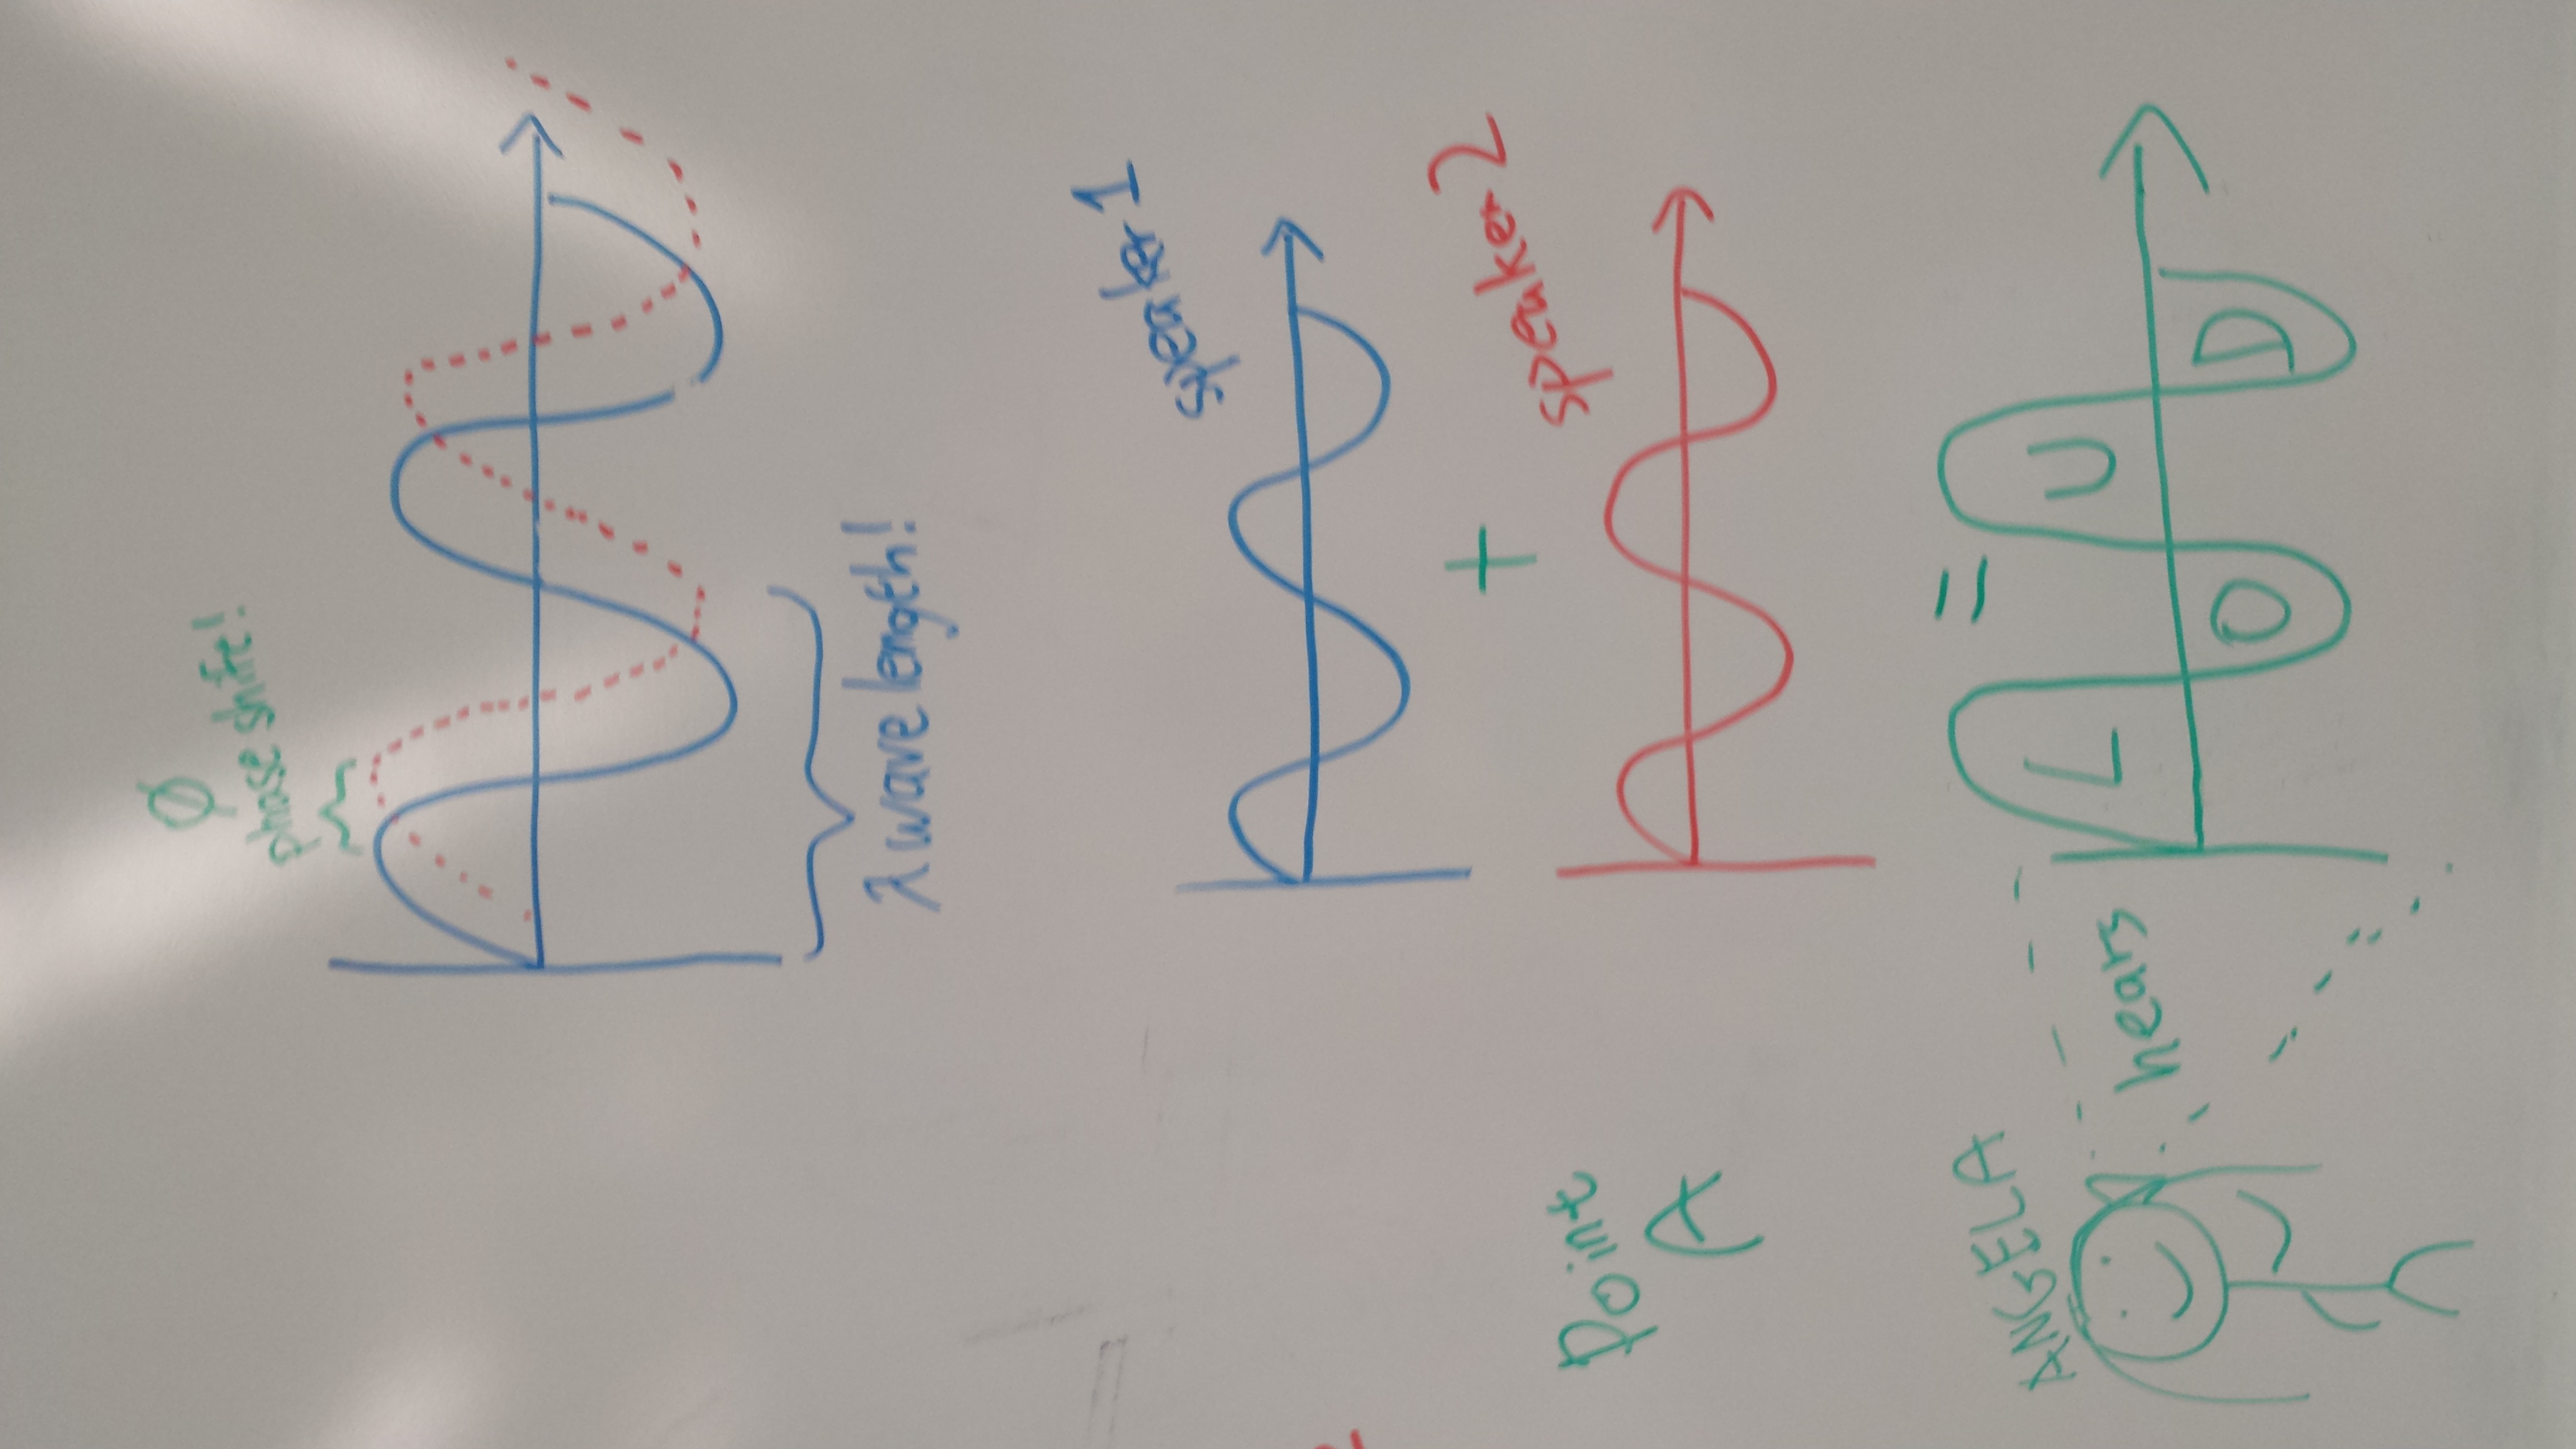 Ø
phase shift!
λ wave length!
speaker 1
+
speaker 2
Point
A
=
ANGELA
hears
L
O
U
D